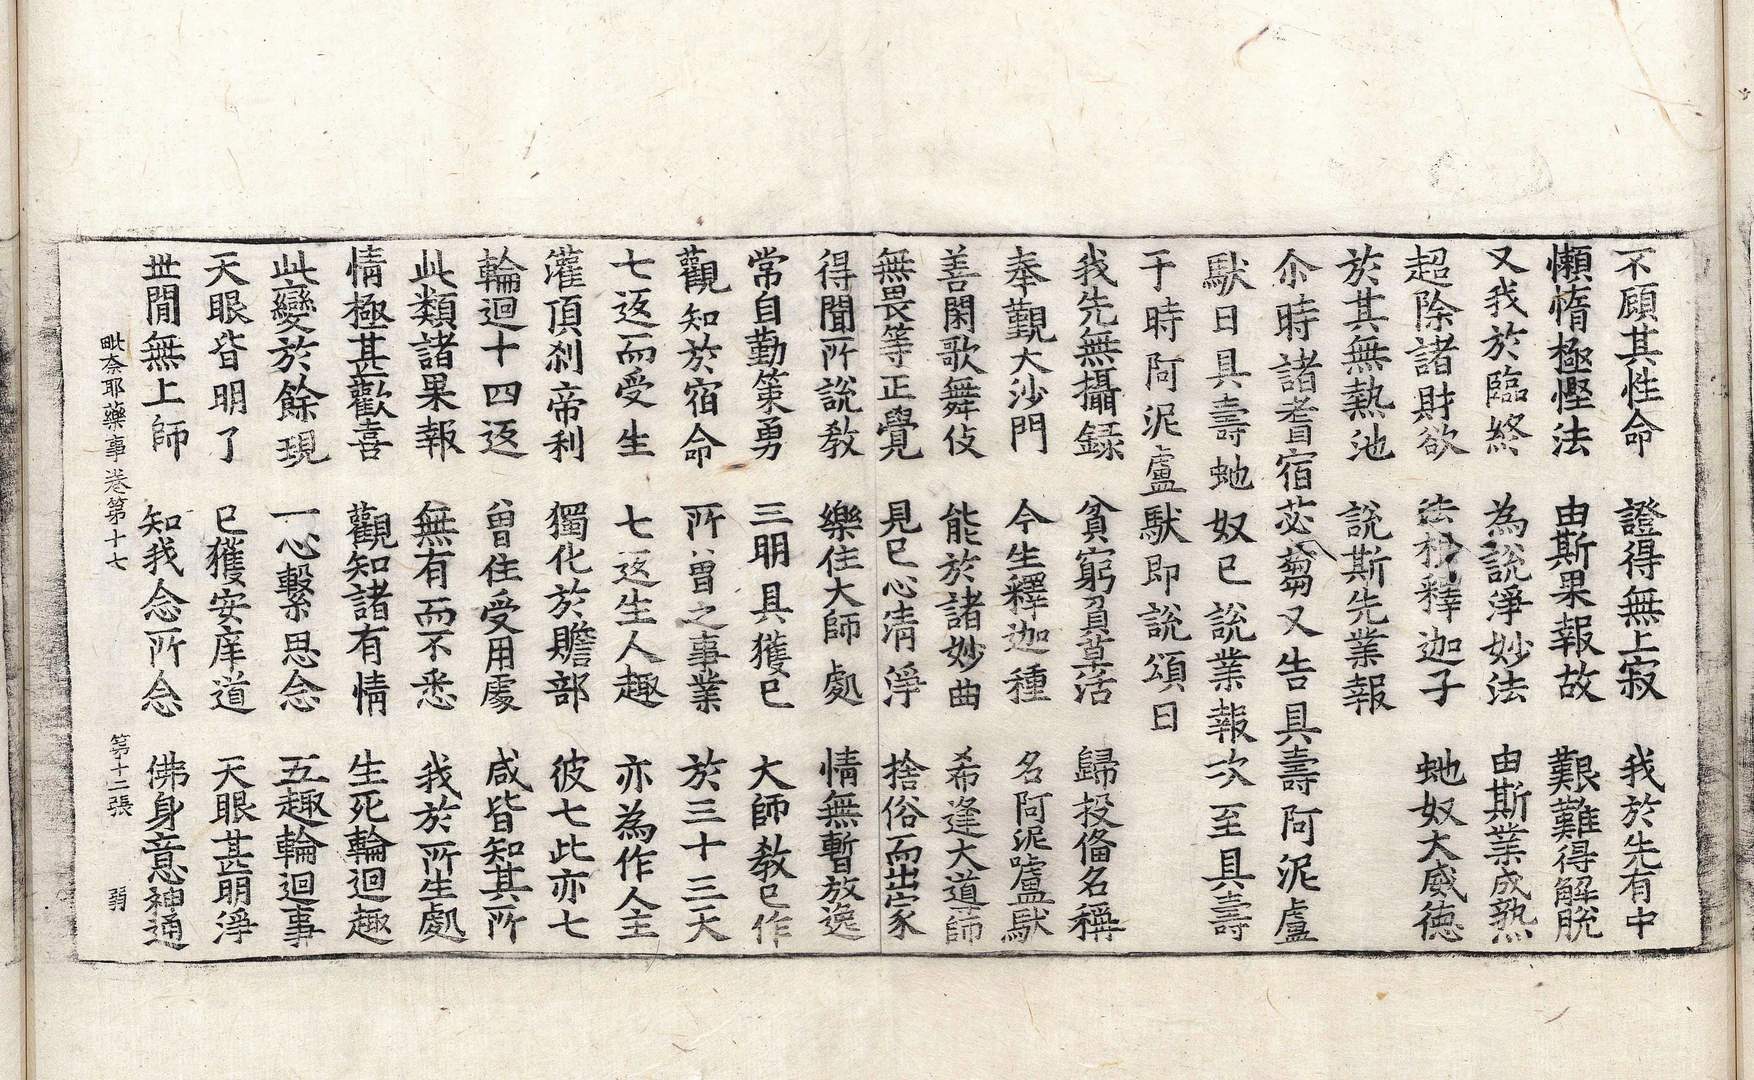 不顧其性命　證得無上寂　我於先有中
懶惰極慳法　由斯果報故　艱難得解脫
又我於臨終　為說淨妙法　由斯業成熟
超除諸財欲　法材釋迦子　虵奴大威德
於其無熱池　說斯先業報
尒時諸耆宿苾蒭又告具壽阿泥盧
䭾曰具壽虵奴已說業報次至具壽
于時阿泥盧䭾即說頌曰
我先無攝錄　貧窮負草活　歸投俻名稱
奉覲大沙門　今生釋迦種　名阿泥嚧䭾
善閑歌舞伎　能於諸妙曲　希逢大導師
無畏等正覺　見已心清淨　捨俗而出家
得聞所說教　樂住大師處　情無暫放逸
常自勤策勇　三明具獲已　大師教已作
觀知於宿命　所曾之事業　於三十三天
七返而受生　七返生人趣　亦為作人主
灌頂刹帝利　獨化於贍部　彼七此亦七
輪迴十四返　曾住受用處　咸皆知其所
此類諸果報　無有而不悉　我於所生處
情極甚歡喜　觀知諸有情　生死輪迴趣
此變於餘現　一心繫思念　五趣輪迴事
天眼皆明了　已獲安庠道　天眼甚明淨
世間無上師　知我念所念　佛身意神通
毗奈耶藥事卷第十七　第十二張　弱